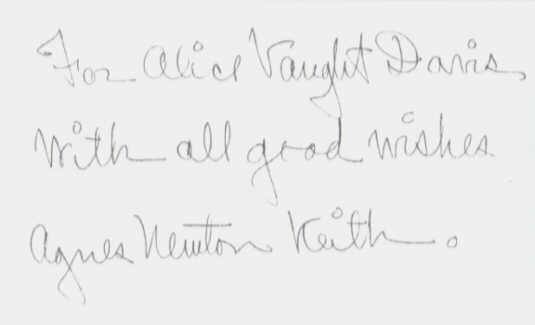 For Alice Vaught Davis,
With all good wishes
Agnes Newton Keith.